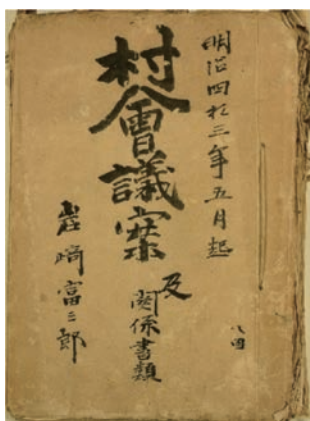 明治四拾三年五月起
村會議案
及
関係書類
岩崎富三郎